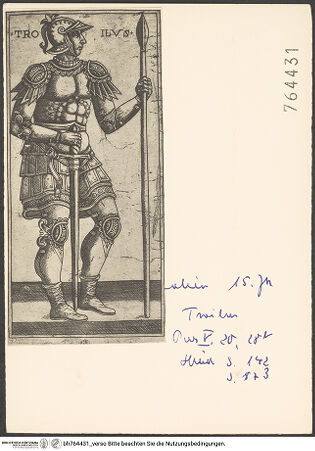 ·TRO ILVS·
764431
15. Jh
Troilus
Pas V. 20, 28b
Hind S. 142
S. 573
bh764431_verso Bitte beachten Sie die Nutzungsbedingungen.